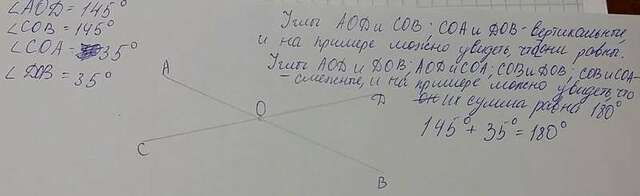 ∠AOD = 145°
∠COB = 145°
∠COA = 35°
∠DOB = 35°
Углы AOD и COB; COA и DOB - вертикальные,
и на примере можно увидеть, что они равны.
Углы AOD и DOB; AOD и COA; COB и DOB; COB и COA
- смежные, и на примере можно увидеть, что
их сумма равна 180°
145° + 35° = 180°
A
O
D
C
B